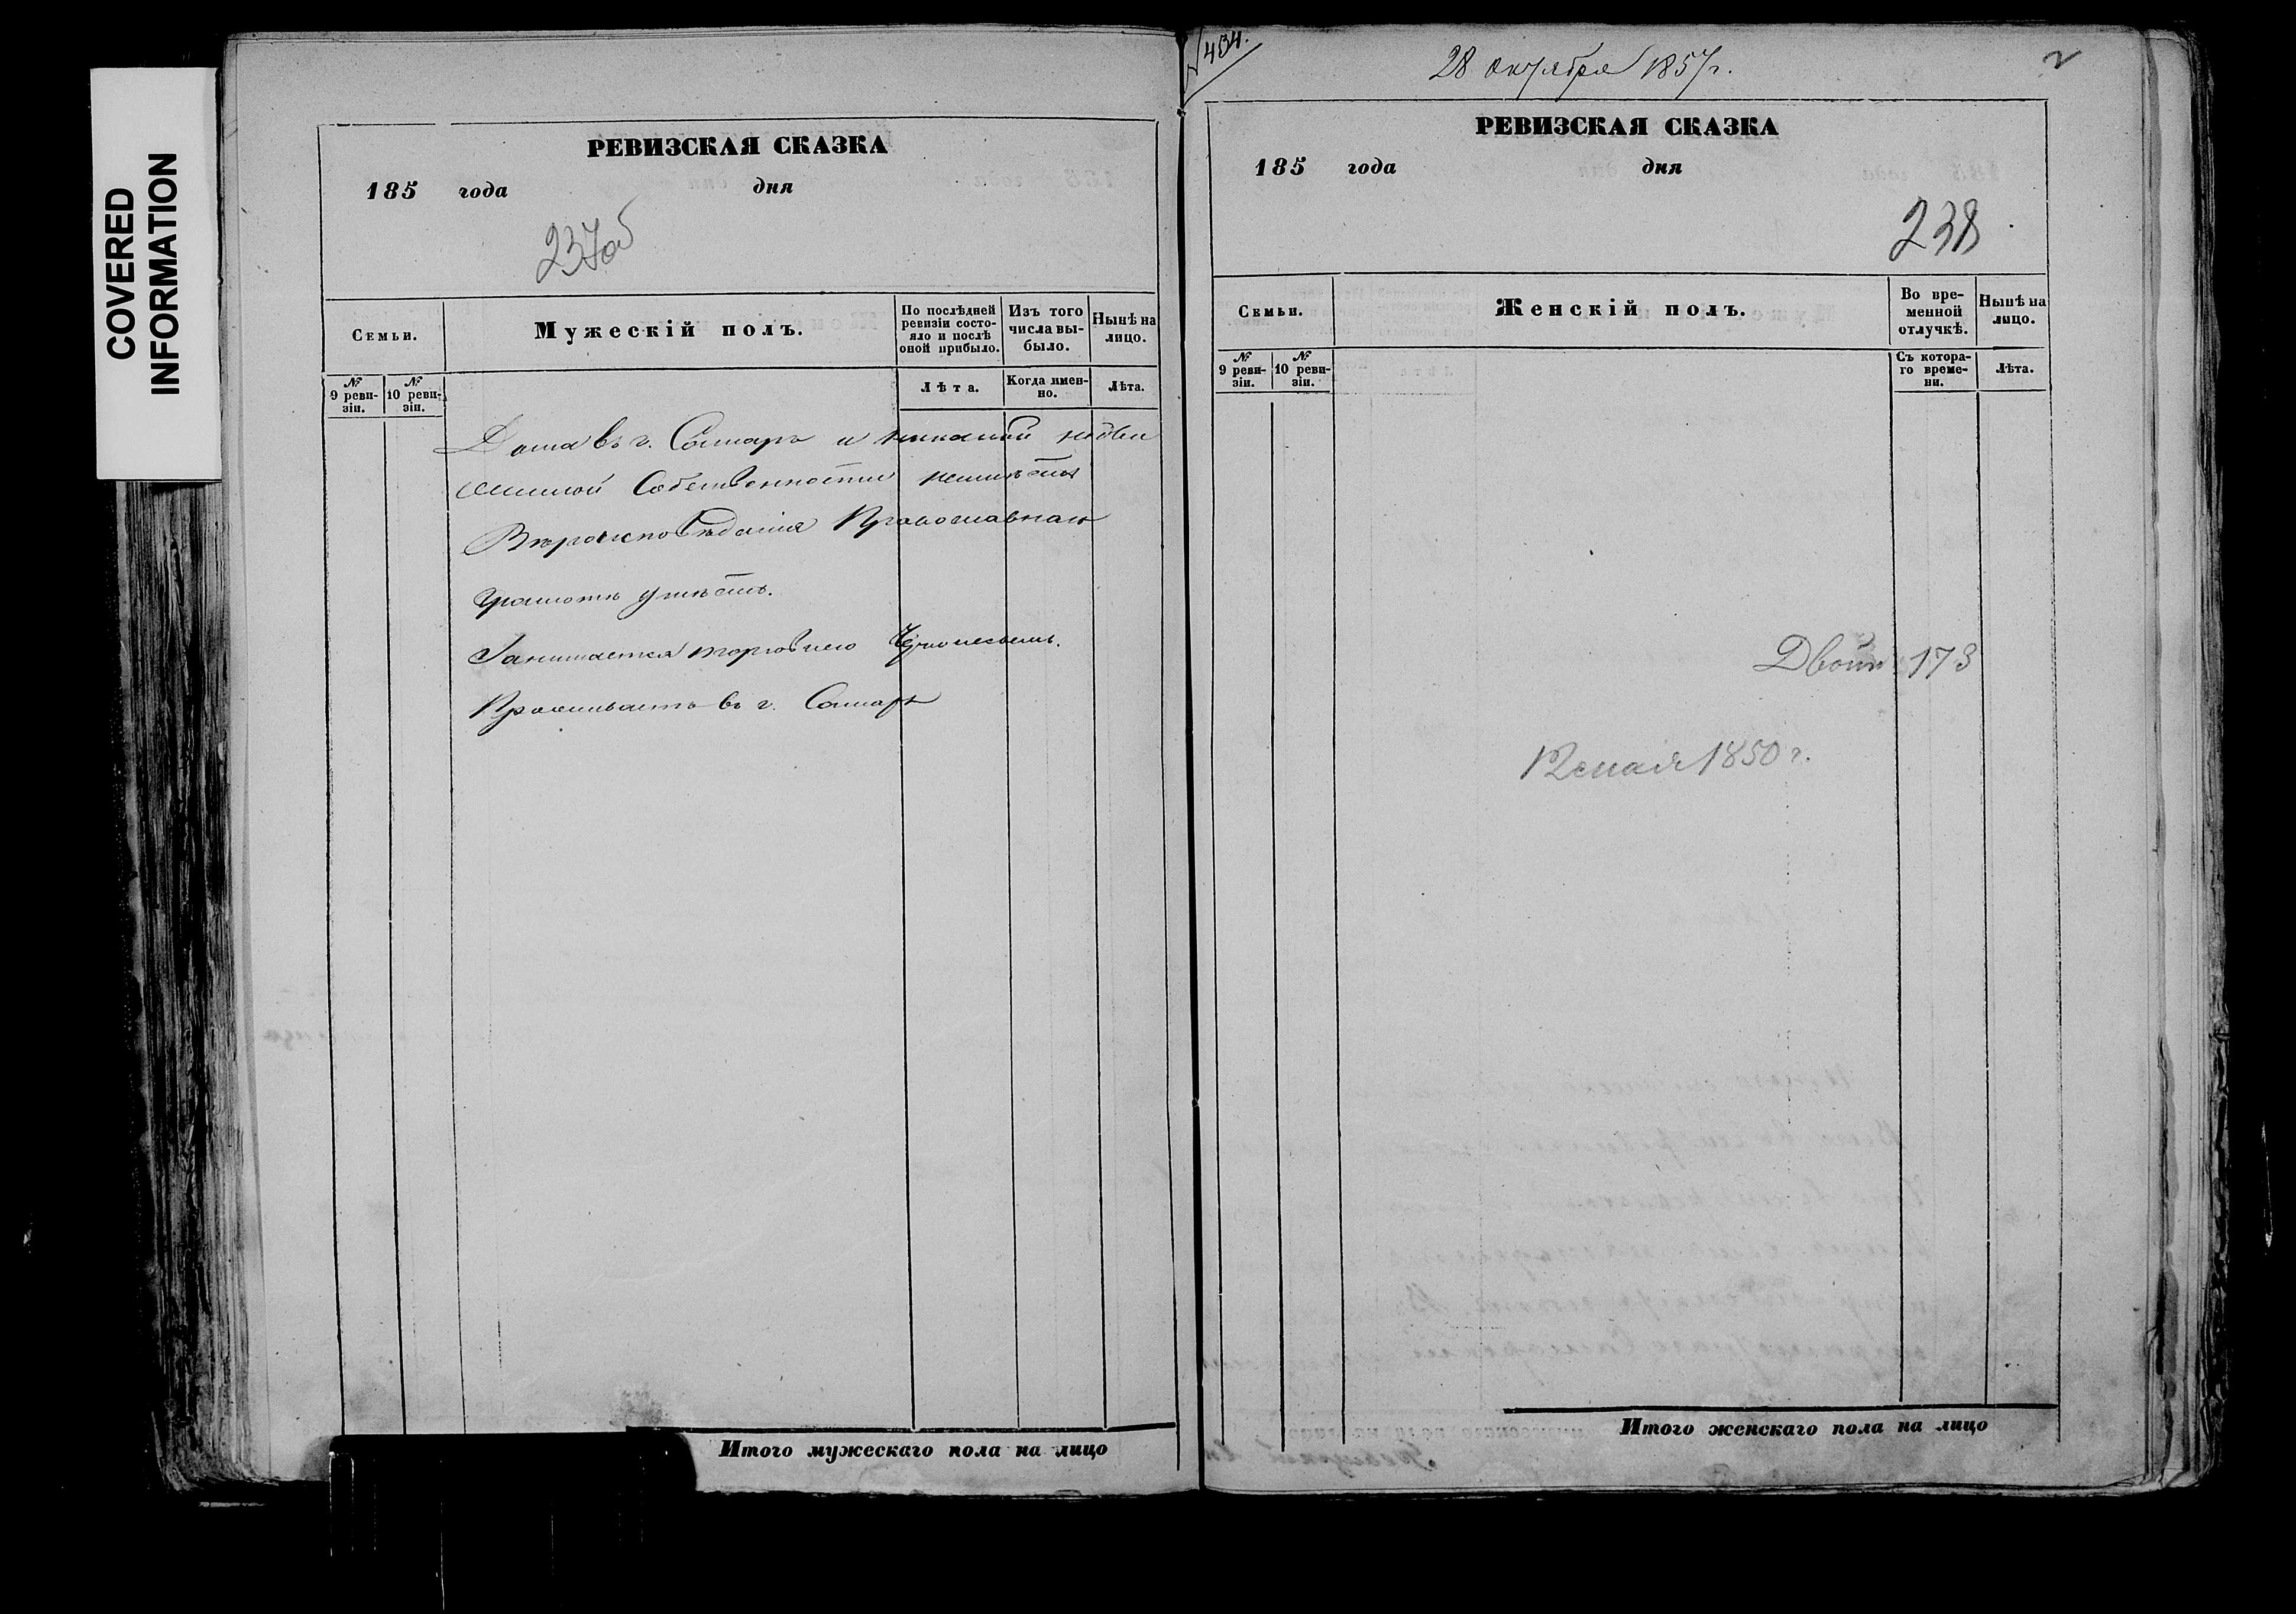 COVERED
INFORMATION
РЕВИЗСКАЯ СКАЗКА
185 года дня
237об
Семьи.
Мужескій полъ.
По послѣдней ревизіи состояло и послѣ оной прибыло.
Изъ того числа выбыло.
Нынѣ на лицо.
№ 9 ревизіи.
№ 10 ревизіи.
Лѣта.
Когда именно.
Лѣта.
Дома въ г. Самарѣ и никакой недви
жимой Собственности неимѣетъ
Вѣроисповѣданія Православнаго
Грамотѣ умѣетъ.
Занимается торговлею
Проживаетъ въ г. Самарѣ
Итого мужескаго пола на лицо
№ 434.
28 октября 1857 г.
2
РЕВИЗСКАЯ СКАЗКА
185 года дня
238
Семьи.
Женскій полъ.
Во временной отлучкѣ.
Нынѣ на лицо.
№ 9 ревизіи.
№ 10 ревизіи.
Съ котораго времени.
Лѣта.
173
12 мая 1850 г.
Итого женскаго пола на лицо